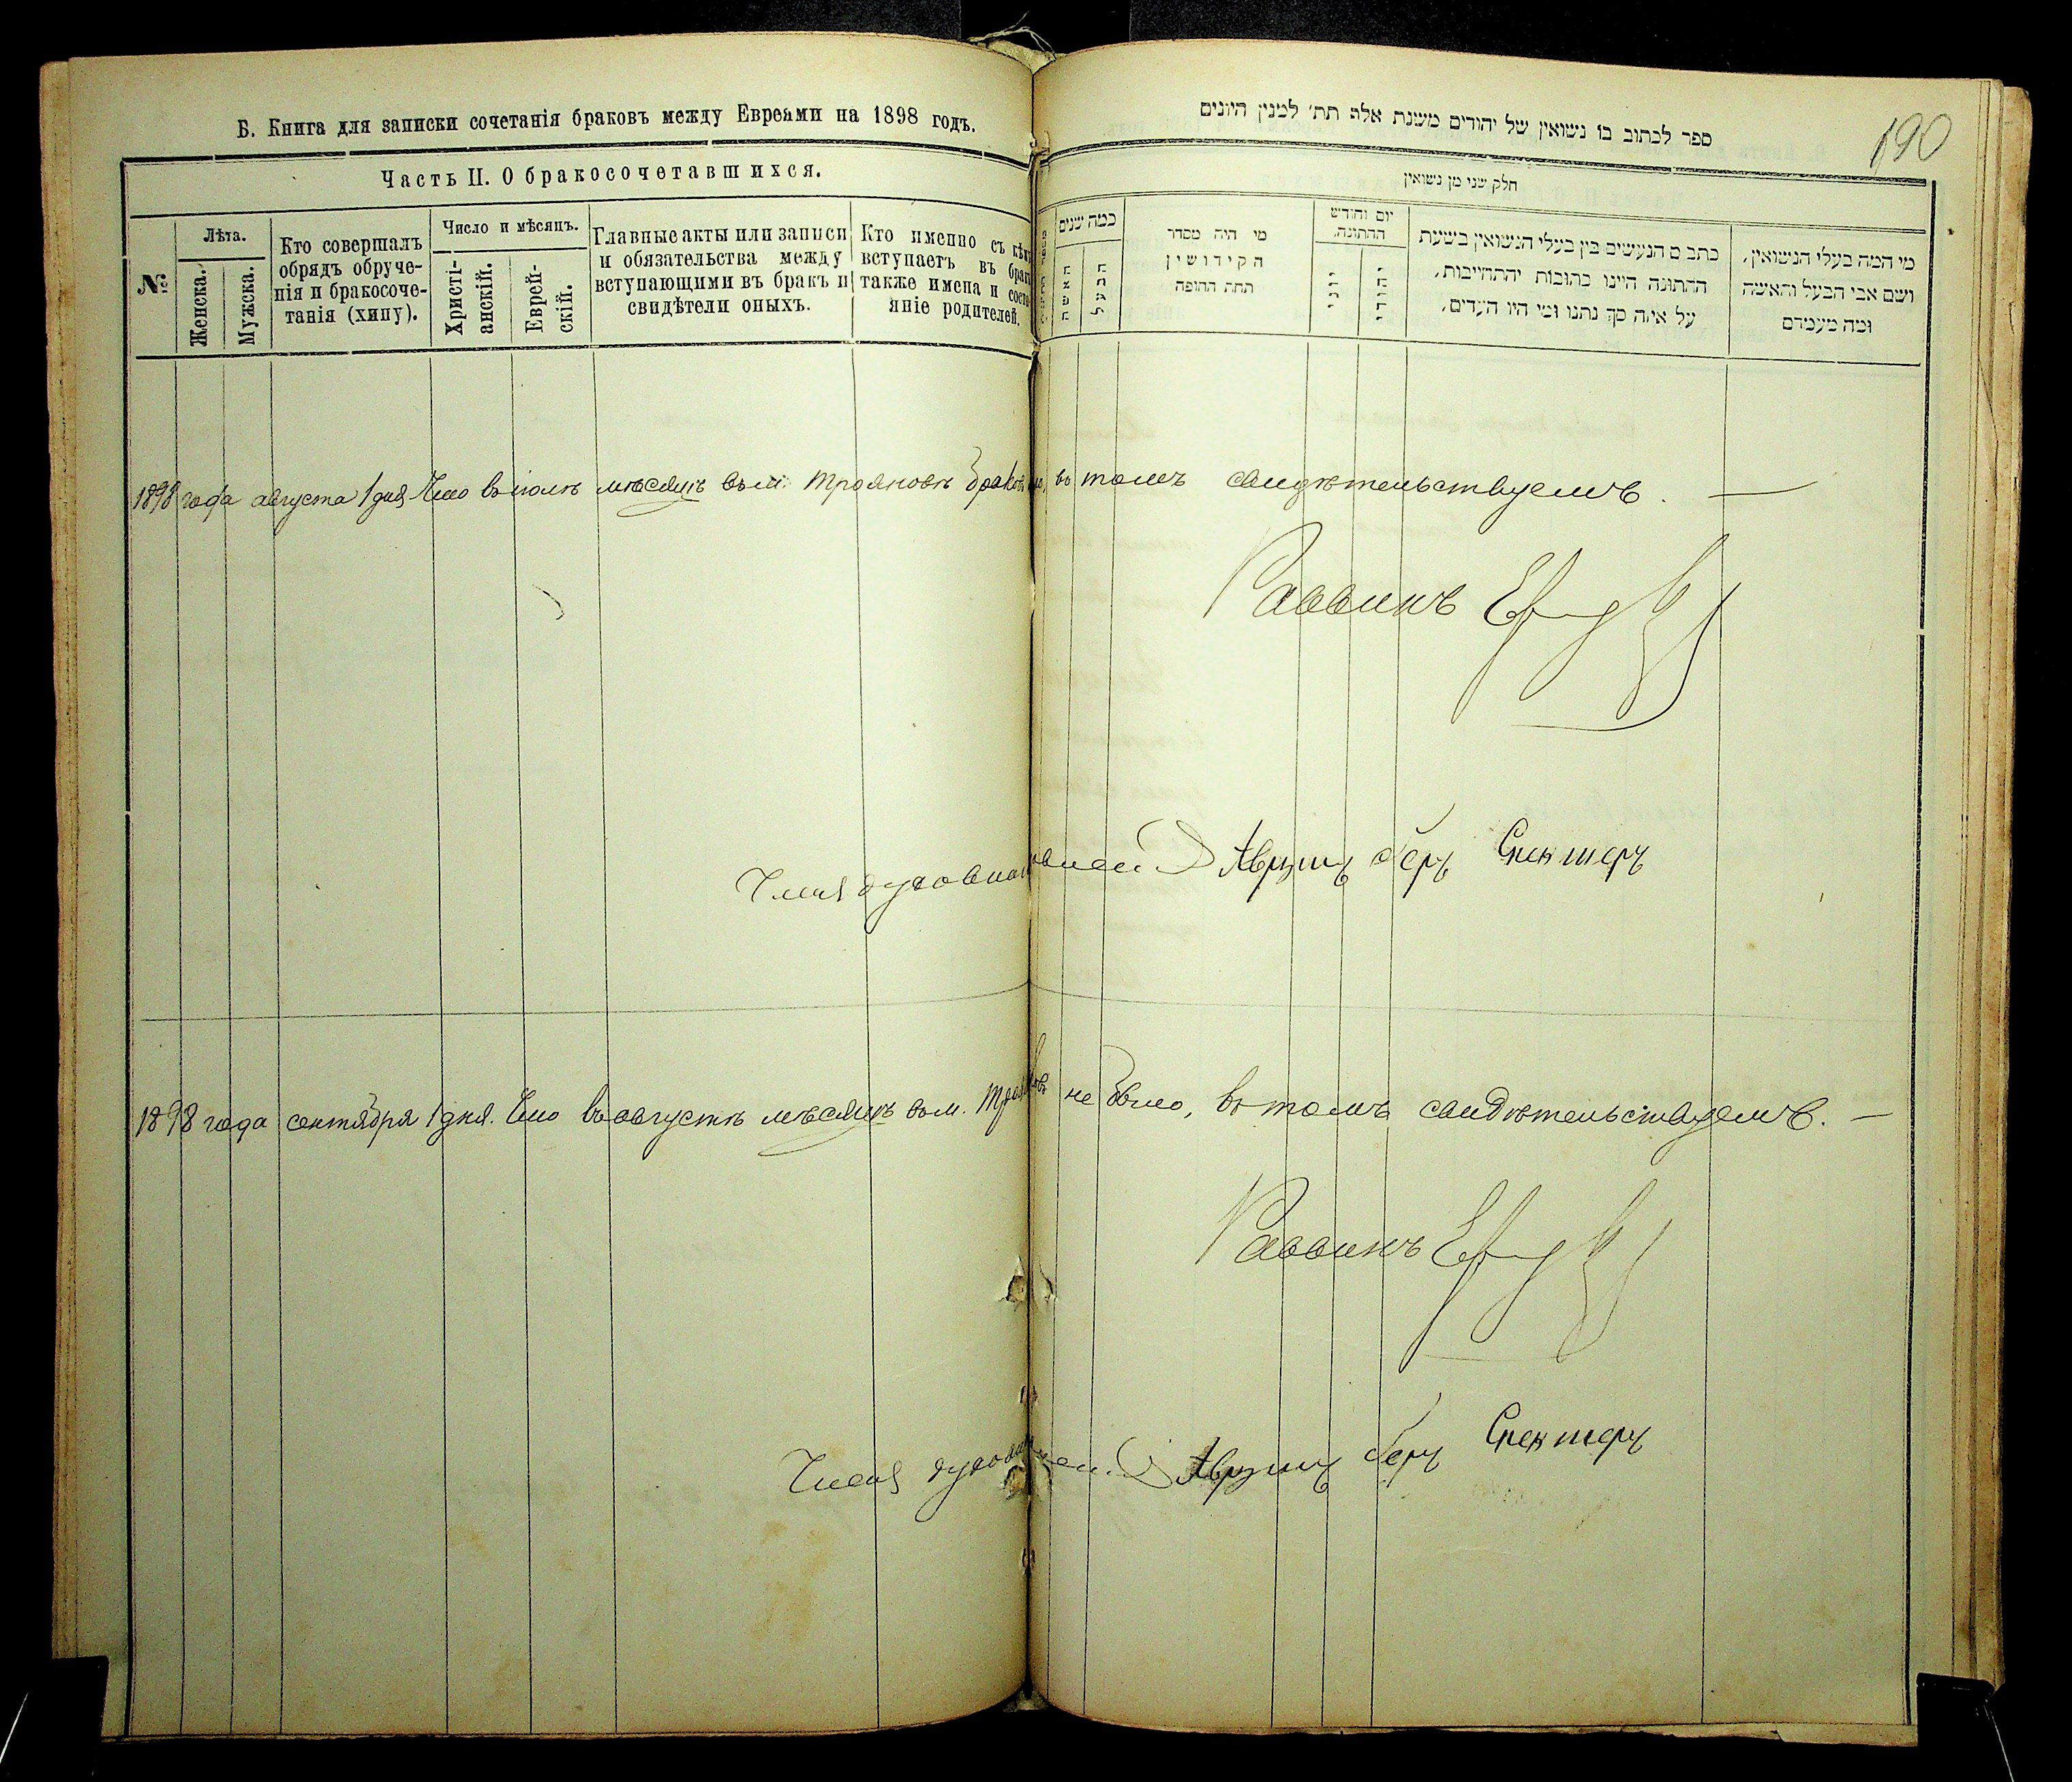 Б. Книга для записки сочетанія браковъ между Евреями на 1898 годъ.
Часть II. О бракосочетавшихся.
№
Лѣта.
Женска.
Мужска.
Кто совершалъ
обрядъ обруче-
нія и бракосоче-
танія (хипу).
Число и мѣсяцъ.
Христі-
анскій.
Еврей-
скій.
Главные акты или записи
и обязательства между
вступающими въ бракъ и
свидѣтели оныхъ.
Кто именно съ кѣмъ
вступаетъ въ бракъ
также имена и состо-
яніе родителей.
ספר לכתוב בו נשואין של יהודים משנת אלף תת׳ למנין היונים
190
חלק שני מן נשואין
כמה שנים
האשה
הבעל
מי היה מסדר
הקידושין
תחת החופה
יום וחודש
החתונה.
יוני
יהודי
כתבים הנעשים בין בעלי הנשואין בשעת
החתונה היינו כתובות יהתחייבות,
על איזה סך נתנו ומי היו העדים,
מי המה בעלי הנשואין,
ושם אבי הבעל והאשה
ומה מעמדם
1898 года августа 1 дня Что въ іюлѣ мѣсяцѣ въ м. Трояновѣ браковъ въ томъ свидѣтельствуемъ. —
Раввинъ
Члены духовнаго Аврумъ Беръ Спекторъ
1898 года сентября 1 дня. Что въ августѣ мѣсяцѣ въ м. не было, въ томъ свидѣтельствуемъ. —
Раввинъ
Члены Аврумъ Беръ Спекторъ